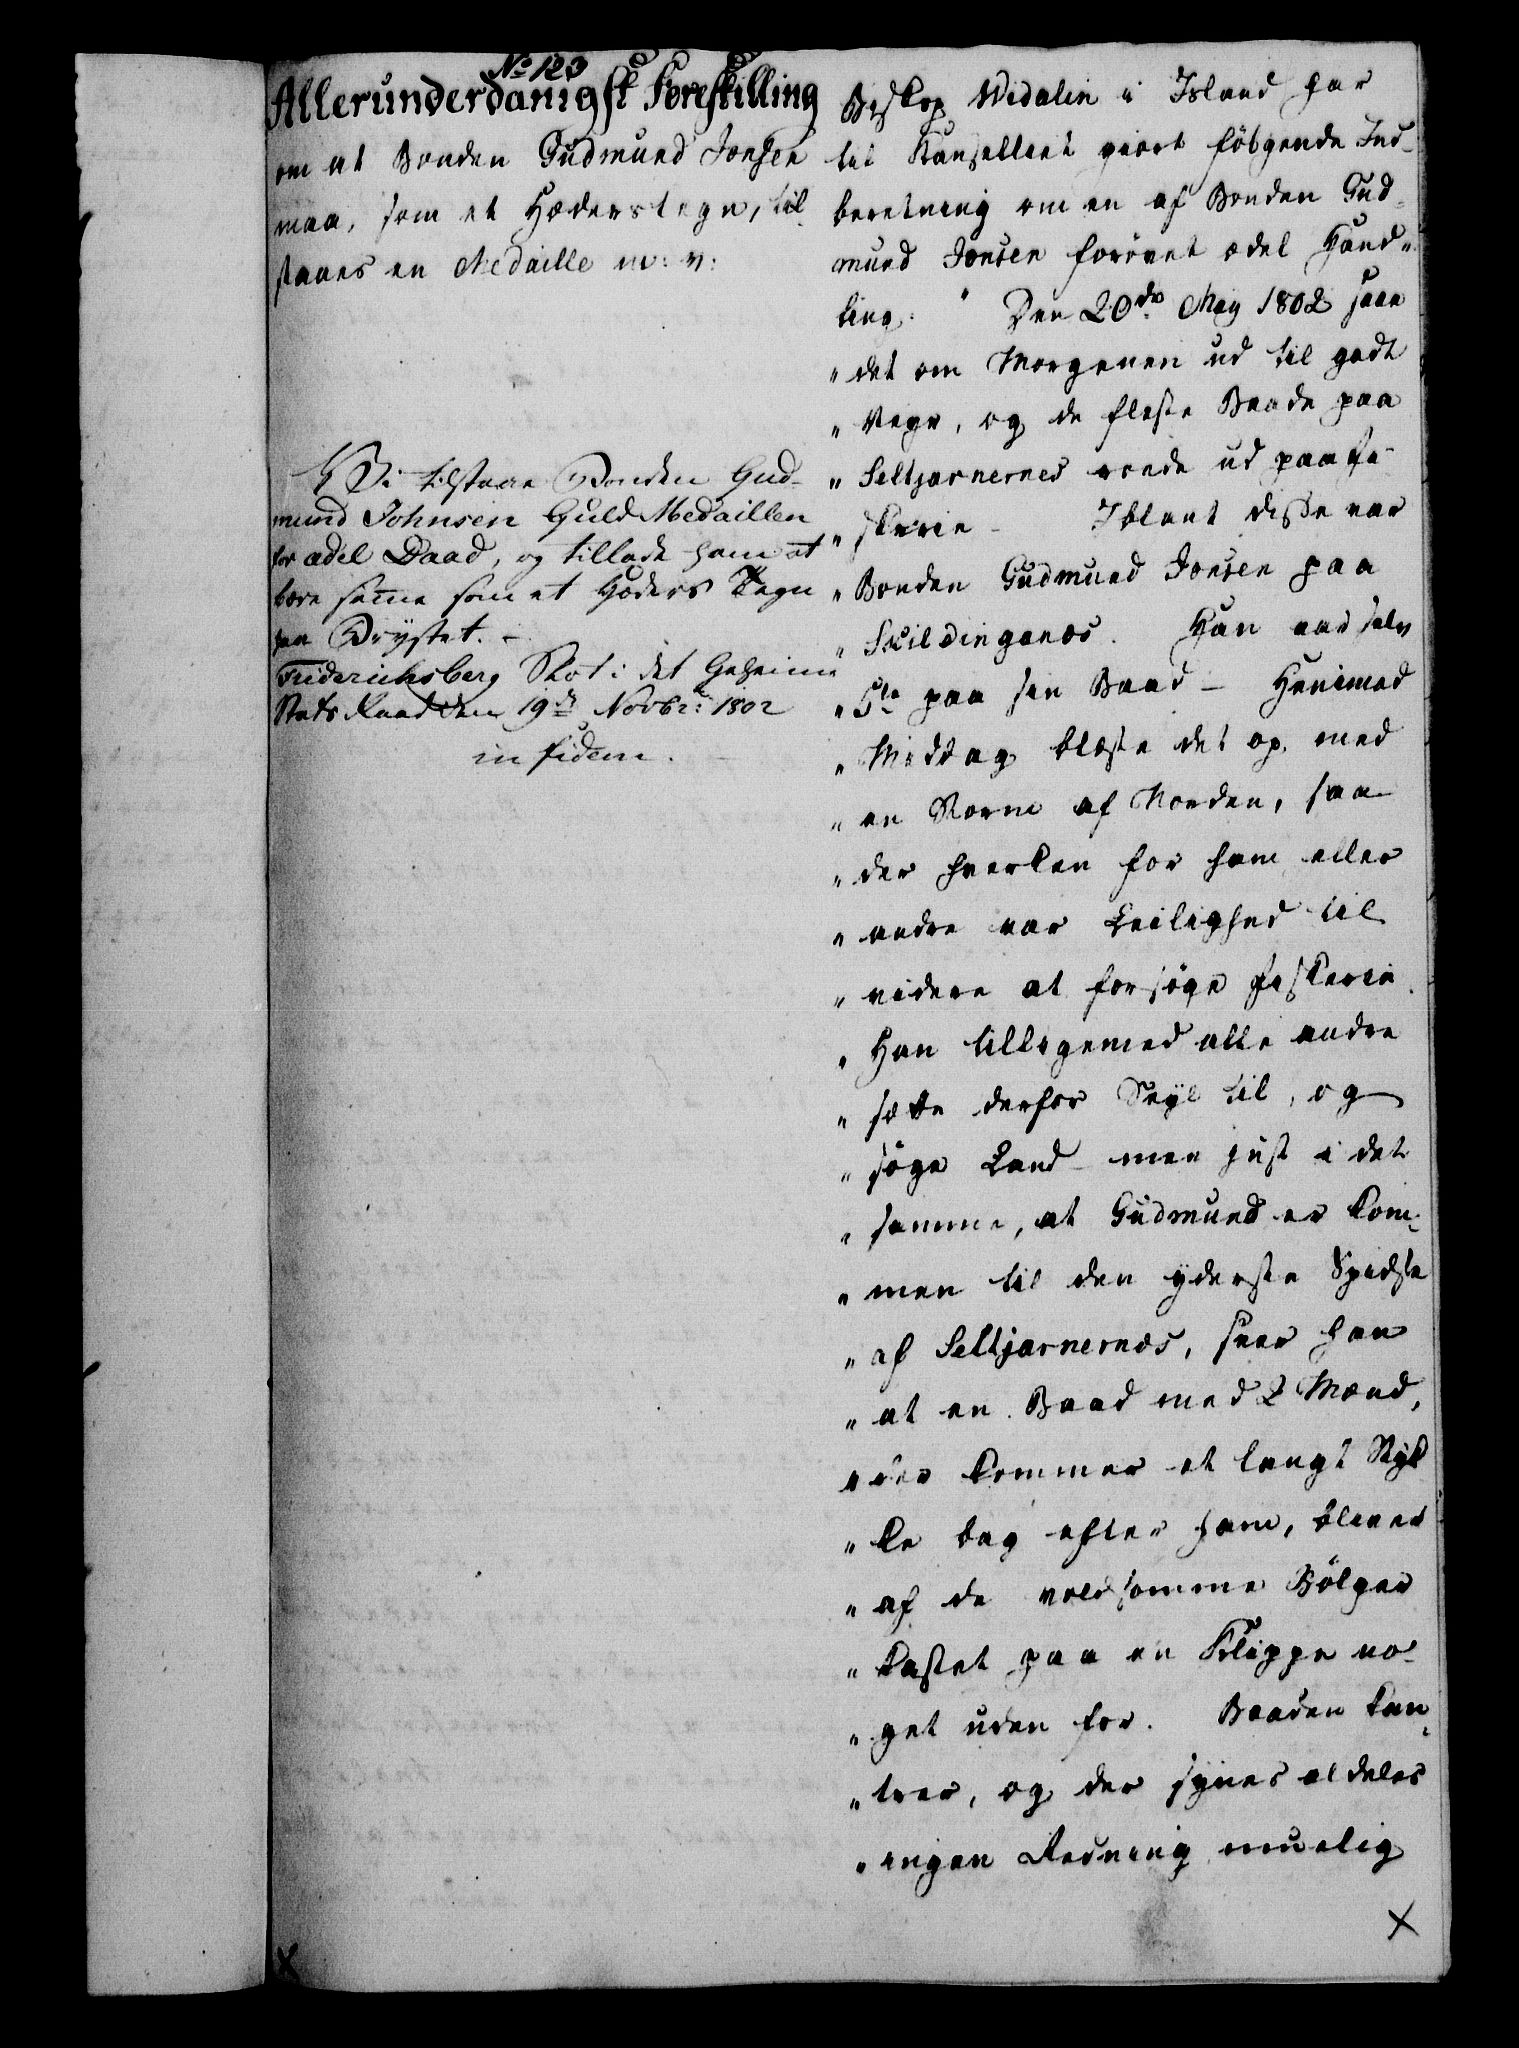 No 123
Allerunderdanigst Forestilling
om at Bonden Gudmund Jonsen
maa, som et Hæderstegn, til-
staaes en Medaille m: v:
Vi tilstaae Bonden Gud-
mund Johnsen Guld Medaillen
for ædel Daad, og tillade ham at
bære samme som et Hæders Tegn
paa Brystet. -
Friderichsberg Slot i det Geheime
Stats Raad den 19de Novbr: 1802
in fidem.
Biskop Widalin i Island har
til Kanselliet giort følgende Ind-
beretning om en af Bonden Gud-
mund Jonsen forøvet ædel Hand-
ling: " Den 20de May 1802 saae
" det om Morgenen ud til godt
" Veyr, og de fleste Baade paa
" Seltjarnernes roede ud paa Fi-
" skerie - Iblant disse var
" Bonden Gudmund Jonsen paa
" Skildinganæs. Han var selv
" 5te paa sin Baad - Henimod
" Middag blæste det op med
" en Storm af Norden, saa
" der hverken for ham eller
" andre var Leilighed til
" videre at forsøge Fiskerie.
" Han tilligemed alle andre
" sætte derfor Seyl til, og
" søge Land - men just i det
" samme, at Gudmund er kom-
" men til den yderste Spidse
" af Seltjarnernæs, seer han
" at en Baad med 2 Mænd,
" der kommer et langt Styk
" ke bag efter ham, bliver
" af de voldsomme Bølger
" kastet paa en Klippe no-
" get uden for. Baaden kan-
" trer, og der synes aldeles
" ingen Redning muelig